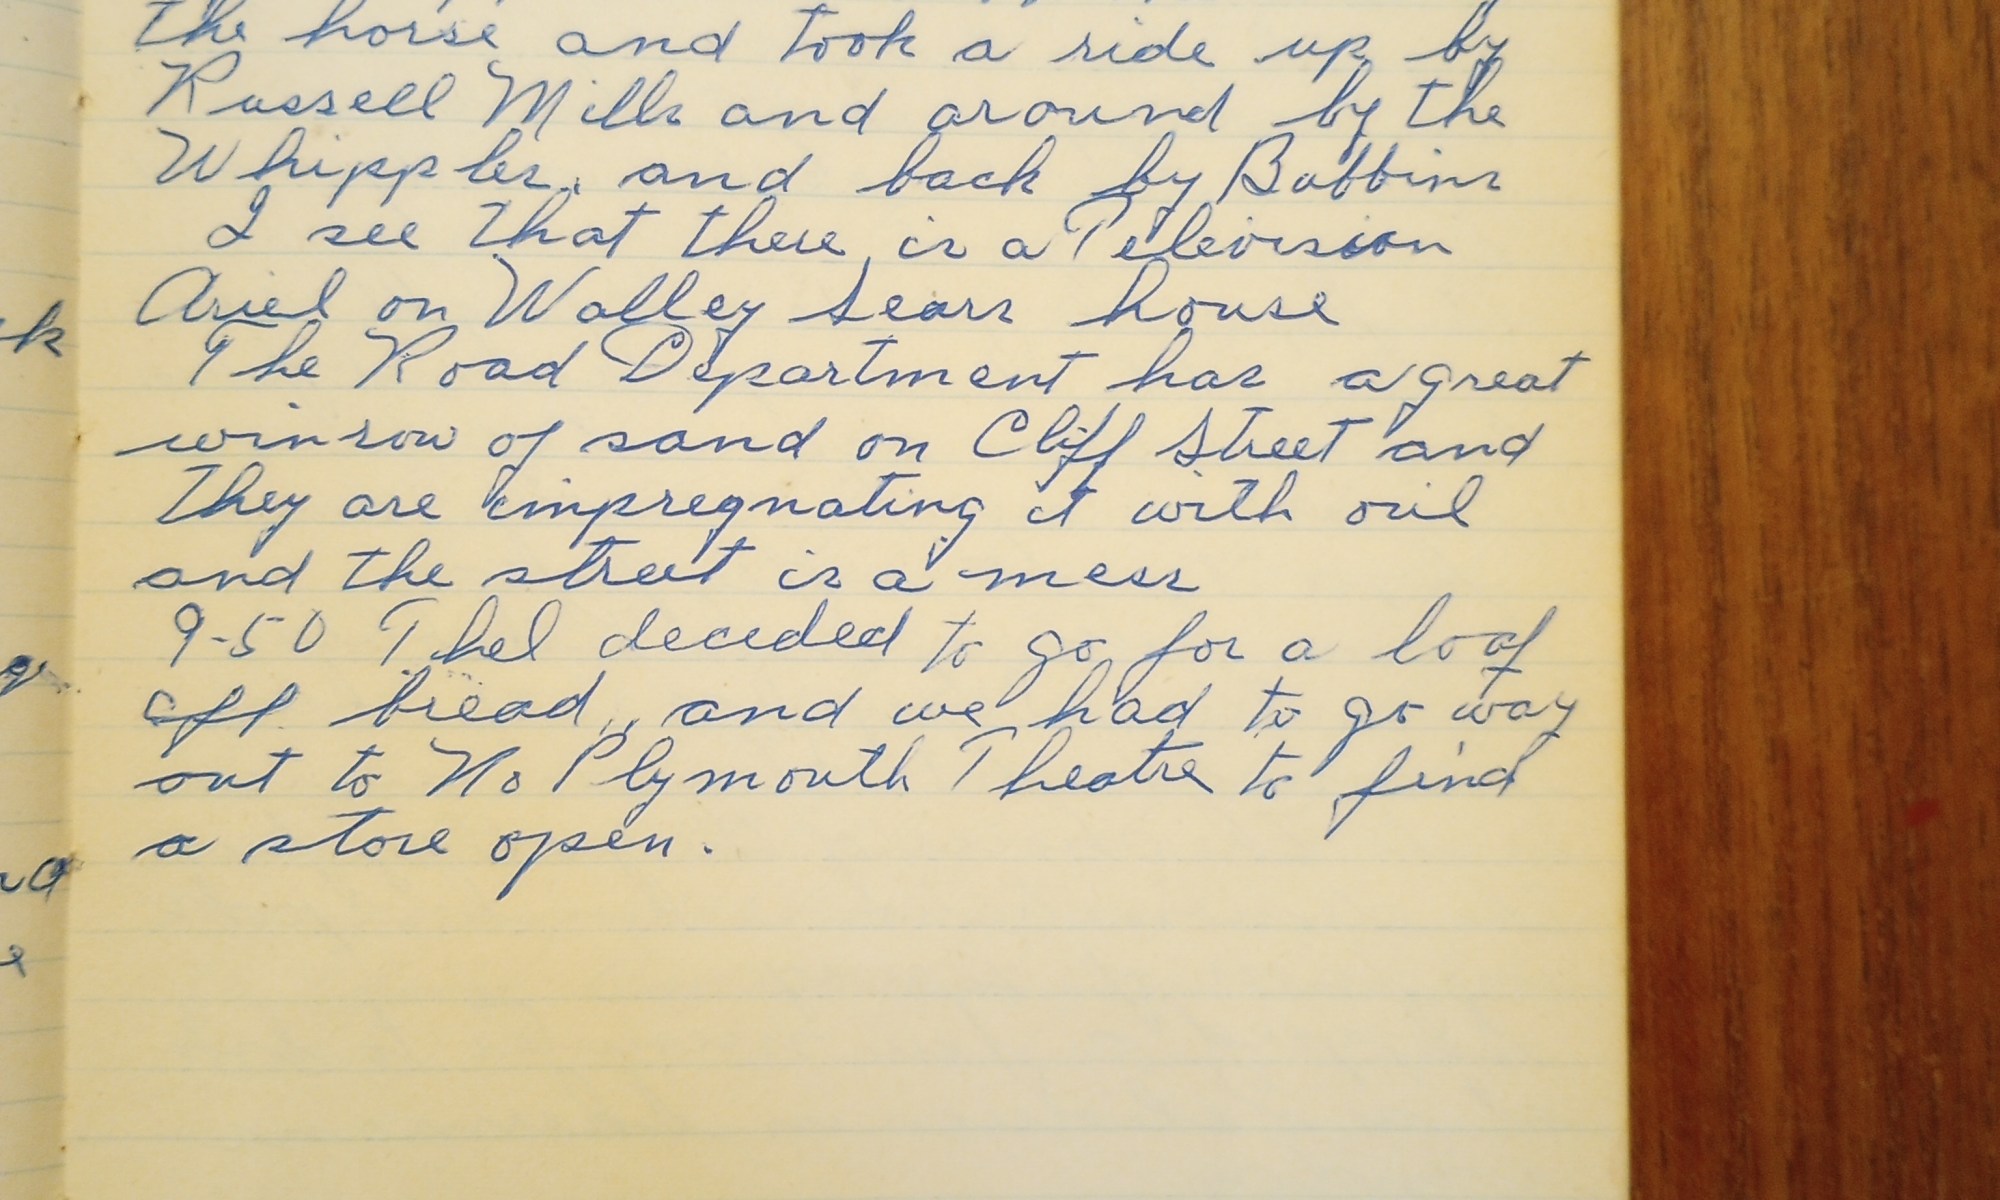 the horse and took a ride up by
Russell Mills and around by the
Whipples, and back by Bobbins
I see that there is a Television
Ariel on Walley Sears house
The Road Department has a great
winrow of sand on Cliff Street and
they are impregnating it with oil
and the street is a mess
9-50 Thel decided to go for a loaf
off bread, and we had to go way
out to No Plymouth Theatre to find
a store open.